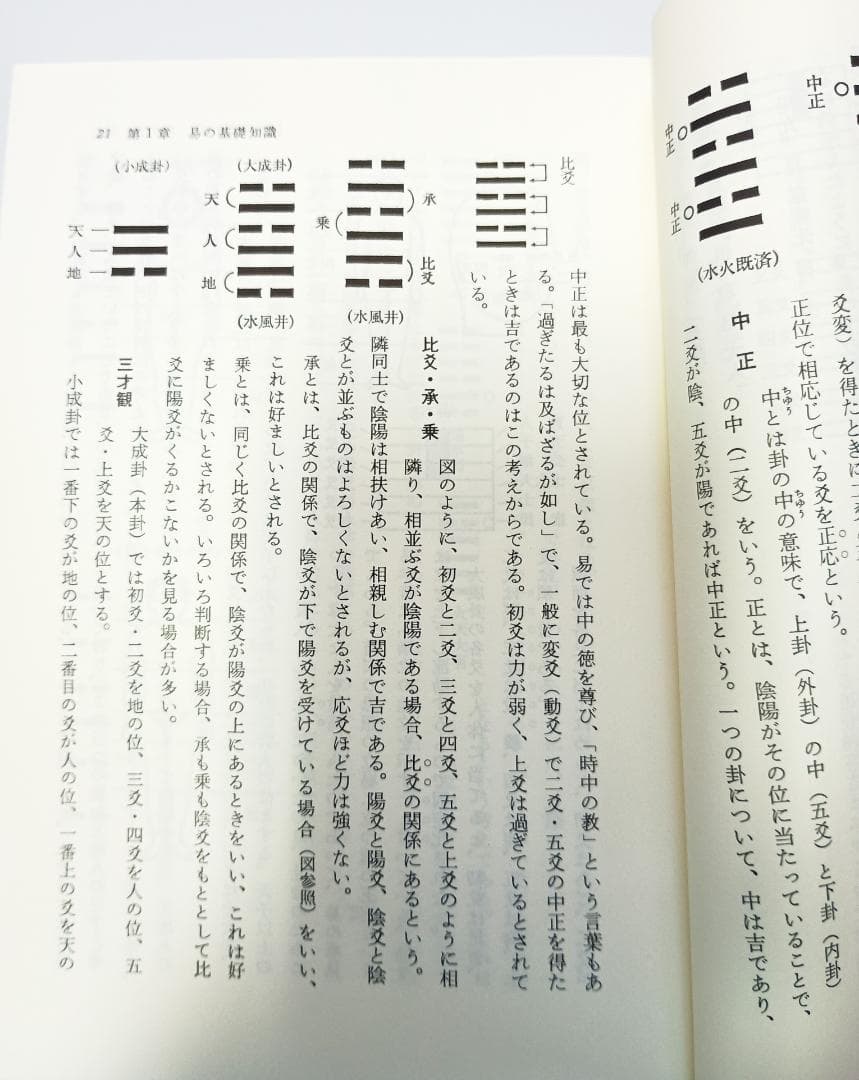 中正
中正
中正
(水火既済)
爻変)を得たときに
正位で相応じている爻を正応という。
中正
中とは卦の中の意味で、上卦(外卦)の中(五爻)と下卦(内卦)
ちゅう
ちゅう
の中(二爻)をいう。正とは、陰陽がその位に当たっていることで、
二爻が陰、五爻が陽であれば中正という。一つの卦について、中は吉であり、
21 第1章 易の基礎知識
比爻
中正は最も大切な位とされている。易では中の徳を尊び、「時中の教」という言葉もあ
る。「過ぎたるは及ばざるが如し」で、一般に変爻(動爻)で二爻・五爻の中正を得た
ときは吉であるのはこの考えからである。初爻は力が弱く、上爻は過ぎているとされて
いる。
承
乗
比爻
(水風井)
比爻・承・乗
図のように、初爻と二爻、三爻と四爻、五爻と上爻のように相
隣り、相並ぶ爻が陰陽である場合、比爻の関係にあるという。
隣同士で陰陽は相扶けあい、相親しむ関係で吉である。陽爻と陽爻、陰爻と陰
爻とが並ぶものはよろしくないとされるが、応爻ほど力は強くない。
承とは、比爻の関係で、陰爻が下で陽爻を受けている場合(図参照)をいい、
これは好ましいとされる。
乗とは、同じく比爻の関係で、陰爻が陽爻の上にあるときをいい、これは好
ましくないとされる。いろいろ判断する場合、承も乗も陰爻をもととして比
爻に陽爻がくるかこないかを見る場合が多い。
(大成卦)
天
人
地
(水風井)
(小成卦)
天
人
地
三才観
大成卦(本卦)では初爻・二爻を地の位、三爻・四爻を人の位、五
爻・上爻を天の位とする。
小成卦では一番下の爻が地の位、二番目の爻が人の位、一番上の爻を天の